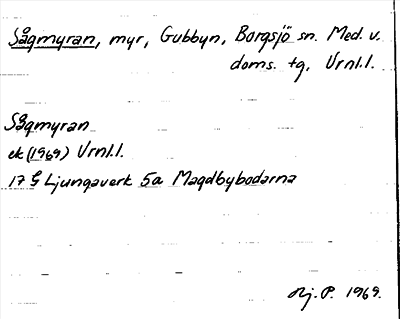 Sågmyran, myr, Gubbyn, Borgsjö sn. Med. v.
doms. tg, Vrnl.l.
Sågmyran
ek (1969) Vrnl.l.
17 G Ljungaverk 5a Magdbybodarna
Hj. P. 1969.